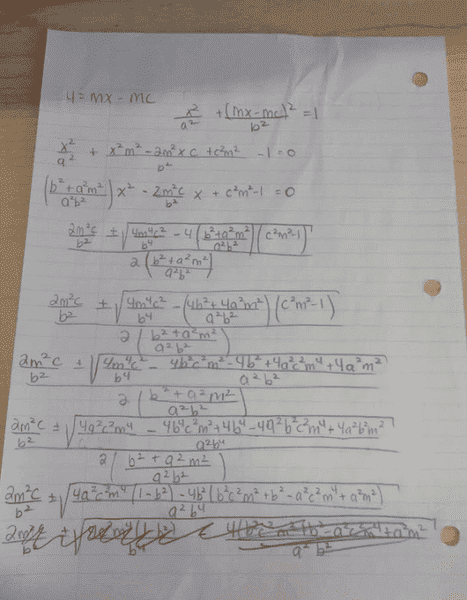 y = mx - mc
x²/a² + [mx-mc]²/b² = 1
x²/a² + (x²m² - 2m²xc + c²m²)/b² - 1 = 0
((b²+a²m²)/(a²b²)) x² - (2m²c/b²) x + c²m²-1 = 0
(2m²c/b² ± √(4m⁴c²/b⁴ - 4((b²+a²m²)/(a²b²))(c²m²-1))) / (2((b²+a²m²)/(a²b²)))
(2m²c/b² ± √(4m⁴c²/b⁴ - ((4b²+4a²m²)/(a²b²))(c²m²-1))) / (2((b²+a²m²)/(a²b²)))
(2m²c/b² ± √(4m⁴c²/b⁴ - (4b²c²m²-4b²+4a²c²m⁴+4a²m²)/(a²b²))) / (2((b²+a²m²)/(a²b²)))
(2m²c/b² ± √((4a²c²m⁴ - 4b⁴c²m²+4b⁴-4a²b²c²m⁴+4a²b²m²)/(a²b⁴))) / (2((b²+a²m²)/(a²b²)))
2m²c/b² ± √((4a²c²m⁴(1-b²) - 4b²(b²c²m²+b²-a²c²m⁴+a²m²))/(a²b⁴))